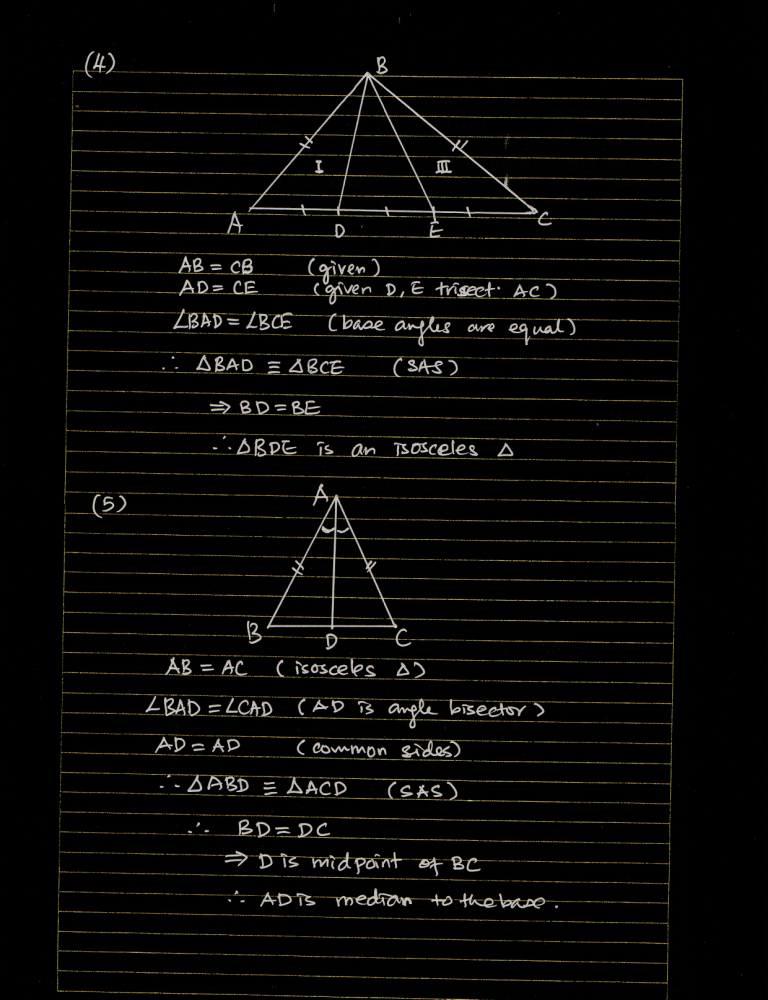 (4)
B
I III
A D E C
AB = CB (given)
AD = CE (given D, E trisect AC)
∠BAD = ∠BCE (base angles are equal)
∴ △BAD ≡ △BCE (SAS)
⇒ BD = BE
∴ △BDE is an isosceles △
(5)
A
B D C
AB = AC (isosceles △)
∠BAD = ∠CAD (AD is angle bisector)
AD = AD (common sides)
∴ △ABD ≡ △ACD (SAS)
∴ BD = DC
⇒ D is midpoint of BC
∴ AD is median to the base.